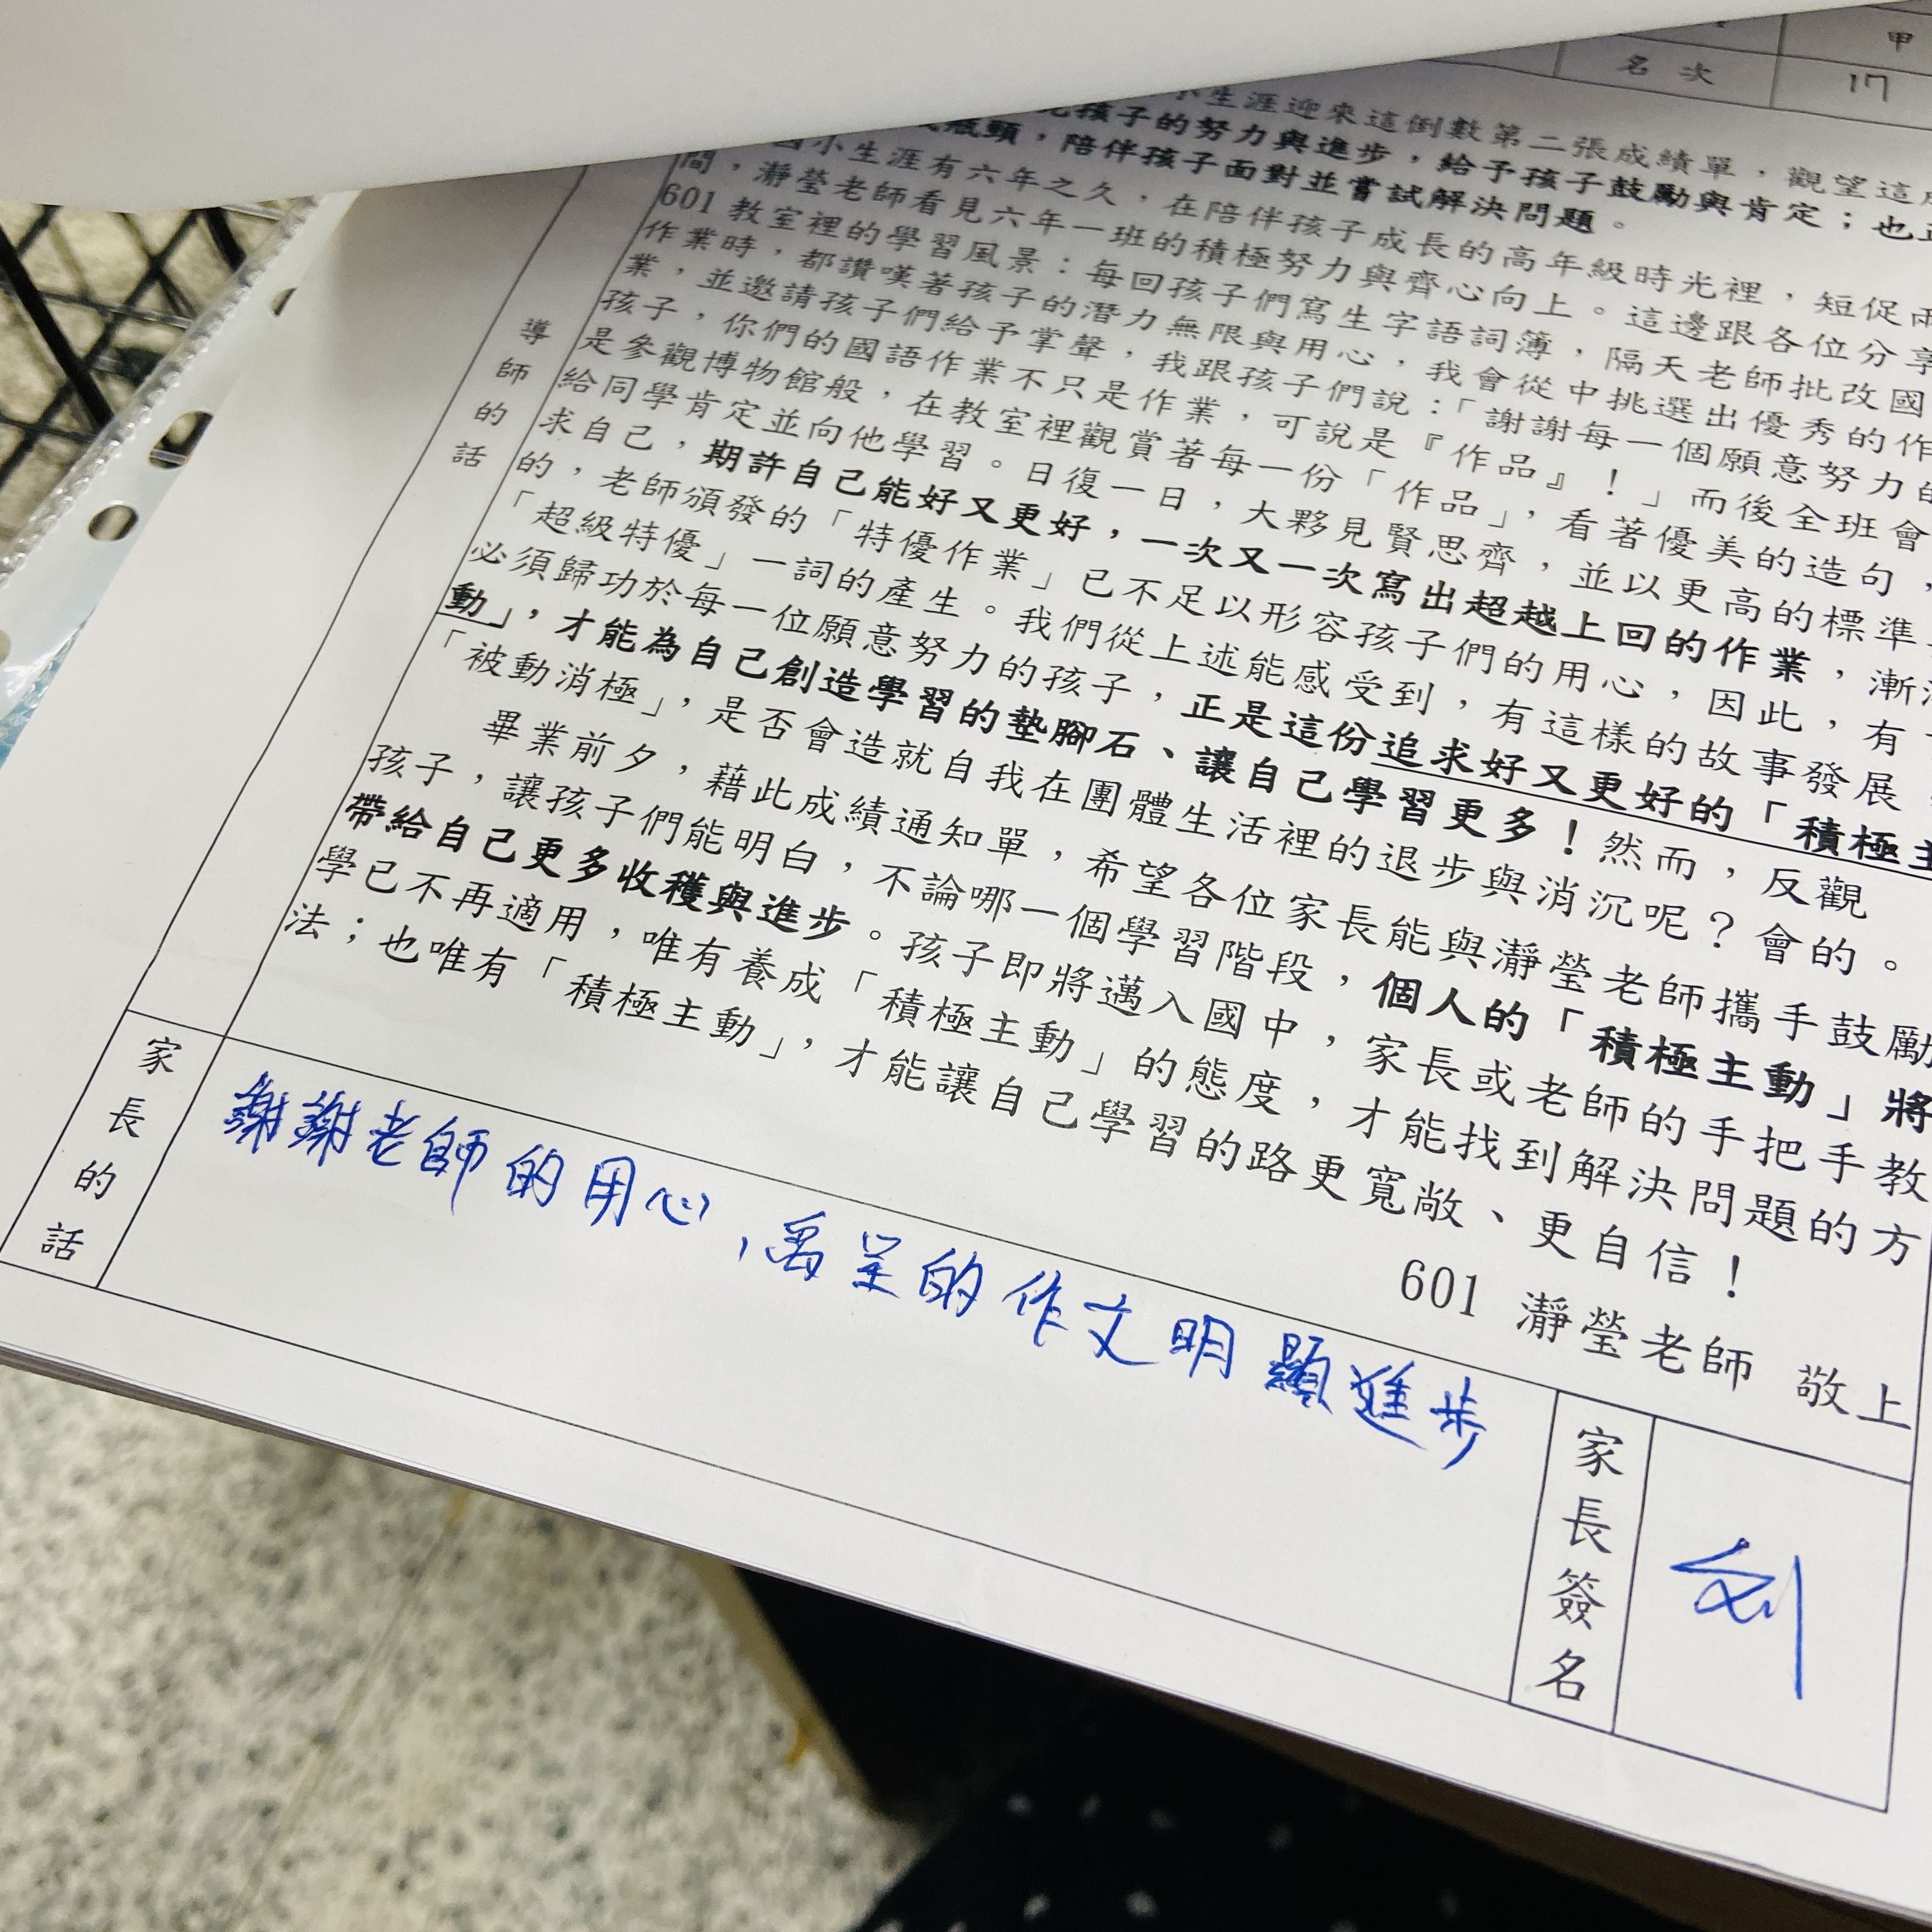 甲
名次 17
小生涯迎來這倒數第二張成績單，觀望這
孩子的努力與進步，給予孩子鼓勵與肯定；也
瓶頸，陪伴孩子面對並嘗試解決問題。
小生涯有六年之久，在陪伴孩子成長的高年級時光裡，短促
間，瀞瑩老師看見六年一班的積極努力與齊心向上。這邊跟各位分享
601 教室裡的學習風景：每回孩子們寫生字語詞簿，隔天老師批改國
作業時，都讚嘆著孩子的潛力無限與用心，我會從中挑選出優秀的作
業，並邀請孩子們給予掌聲，我跟孩子們說：「謝謝每一個願意努力的
孩子，你們的國語作業不只是作業，可說是『作品』！」而後全班會
是參觀博物館般，在教室裡觀賞著每一份「作品」，看著優美的造句，
給同學肯定並向他學習。日復一日，大夥見賢思齊，並以更高的標準
求自己，期許自己能好又更好，一次又一次寫出超越上回的作業，漸
的，老師頒發的「特優作業」已不足以形容孩子們的用心，因此，有
「超級特優」一詞的產生。我們從上述能感受到，有這樣的故事發展，
必須歸功於每一位願意努力的孩子，正是這份追求好又更好的「積極主
動」，才能為自己創造學習的墊腳石、讓自己學習更多！然而，反觀
「被動消極」，是否會造就自我在團體生活裡的退步與消沉呢？會的。
畢業前夕，藉此成績通知單，希望各位家長能與瀞瑩老師攜手鼓勵
孩子，讓孩子們能明白，不論哪一個學習階段，個人的「積極主動」將
帶給自己更多收穫與進步。孩子即將邁入國中，家長或老師的手把手教
學已不再適用，唯有養成「積極主動」的態度，才能找到解決問題的方
法；也唯有「積極主動」，才能讓自己學習的路更寬敞、更自信！
601 瀞瑩老師 敬上
導師的話
家長的話
謝謝老師的用心，禹呈的作文明顯進步
家長簽名
劉